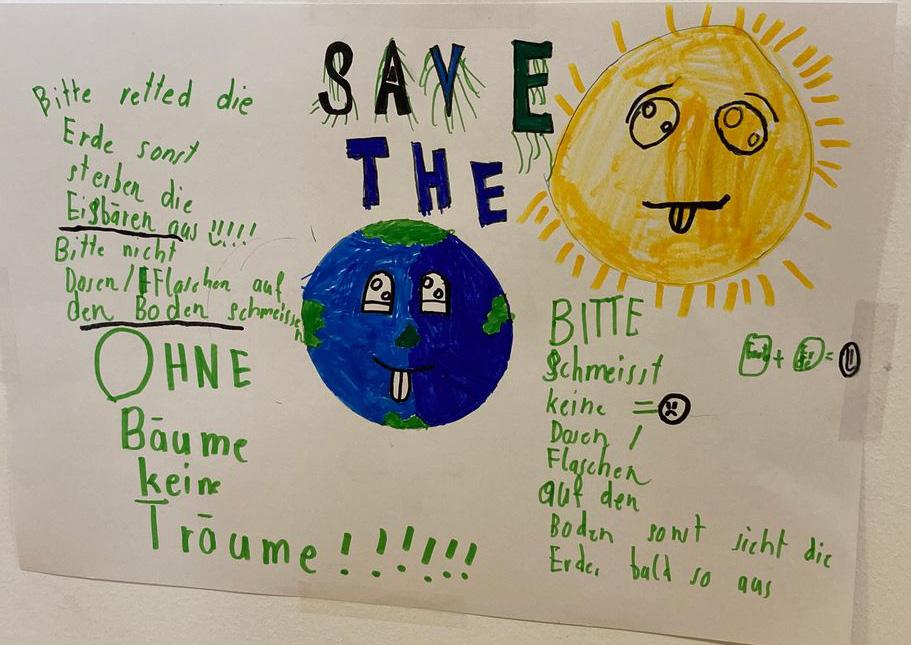 SAVE
THE
Bitte retted die
Erde sonst
sterben die
Eisbären aus !!!!!
Bitte nicht
Dosen/Flaschen auf
den Boden schmeissen
OHNE
Bäume
keine
Träume!!!!!!
BITTE
Schmeisst
keine =
Dosen /
Flaschen
auf den
Boden sonst sieht die
Erde. bald so aus
+ =